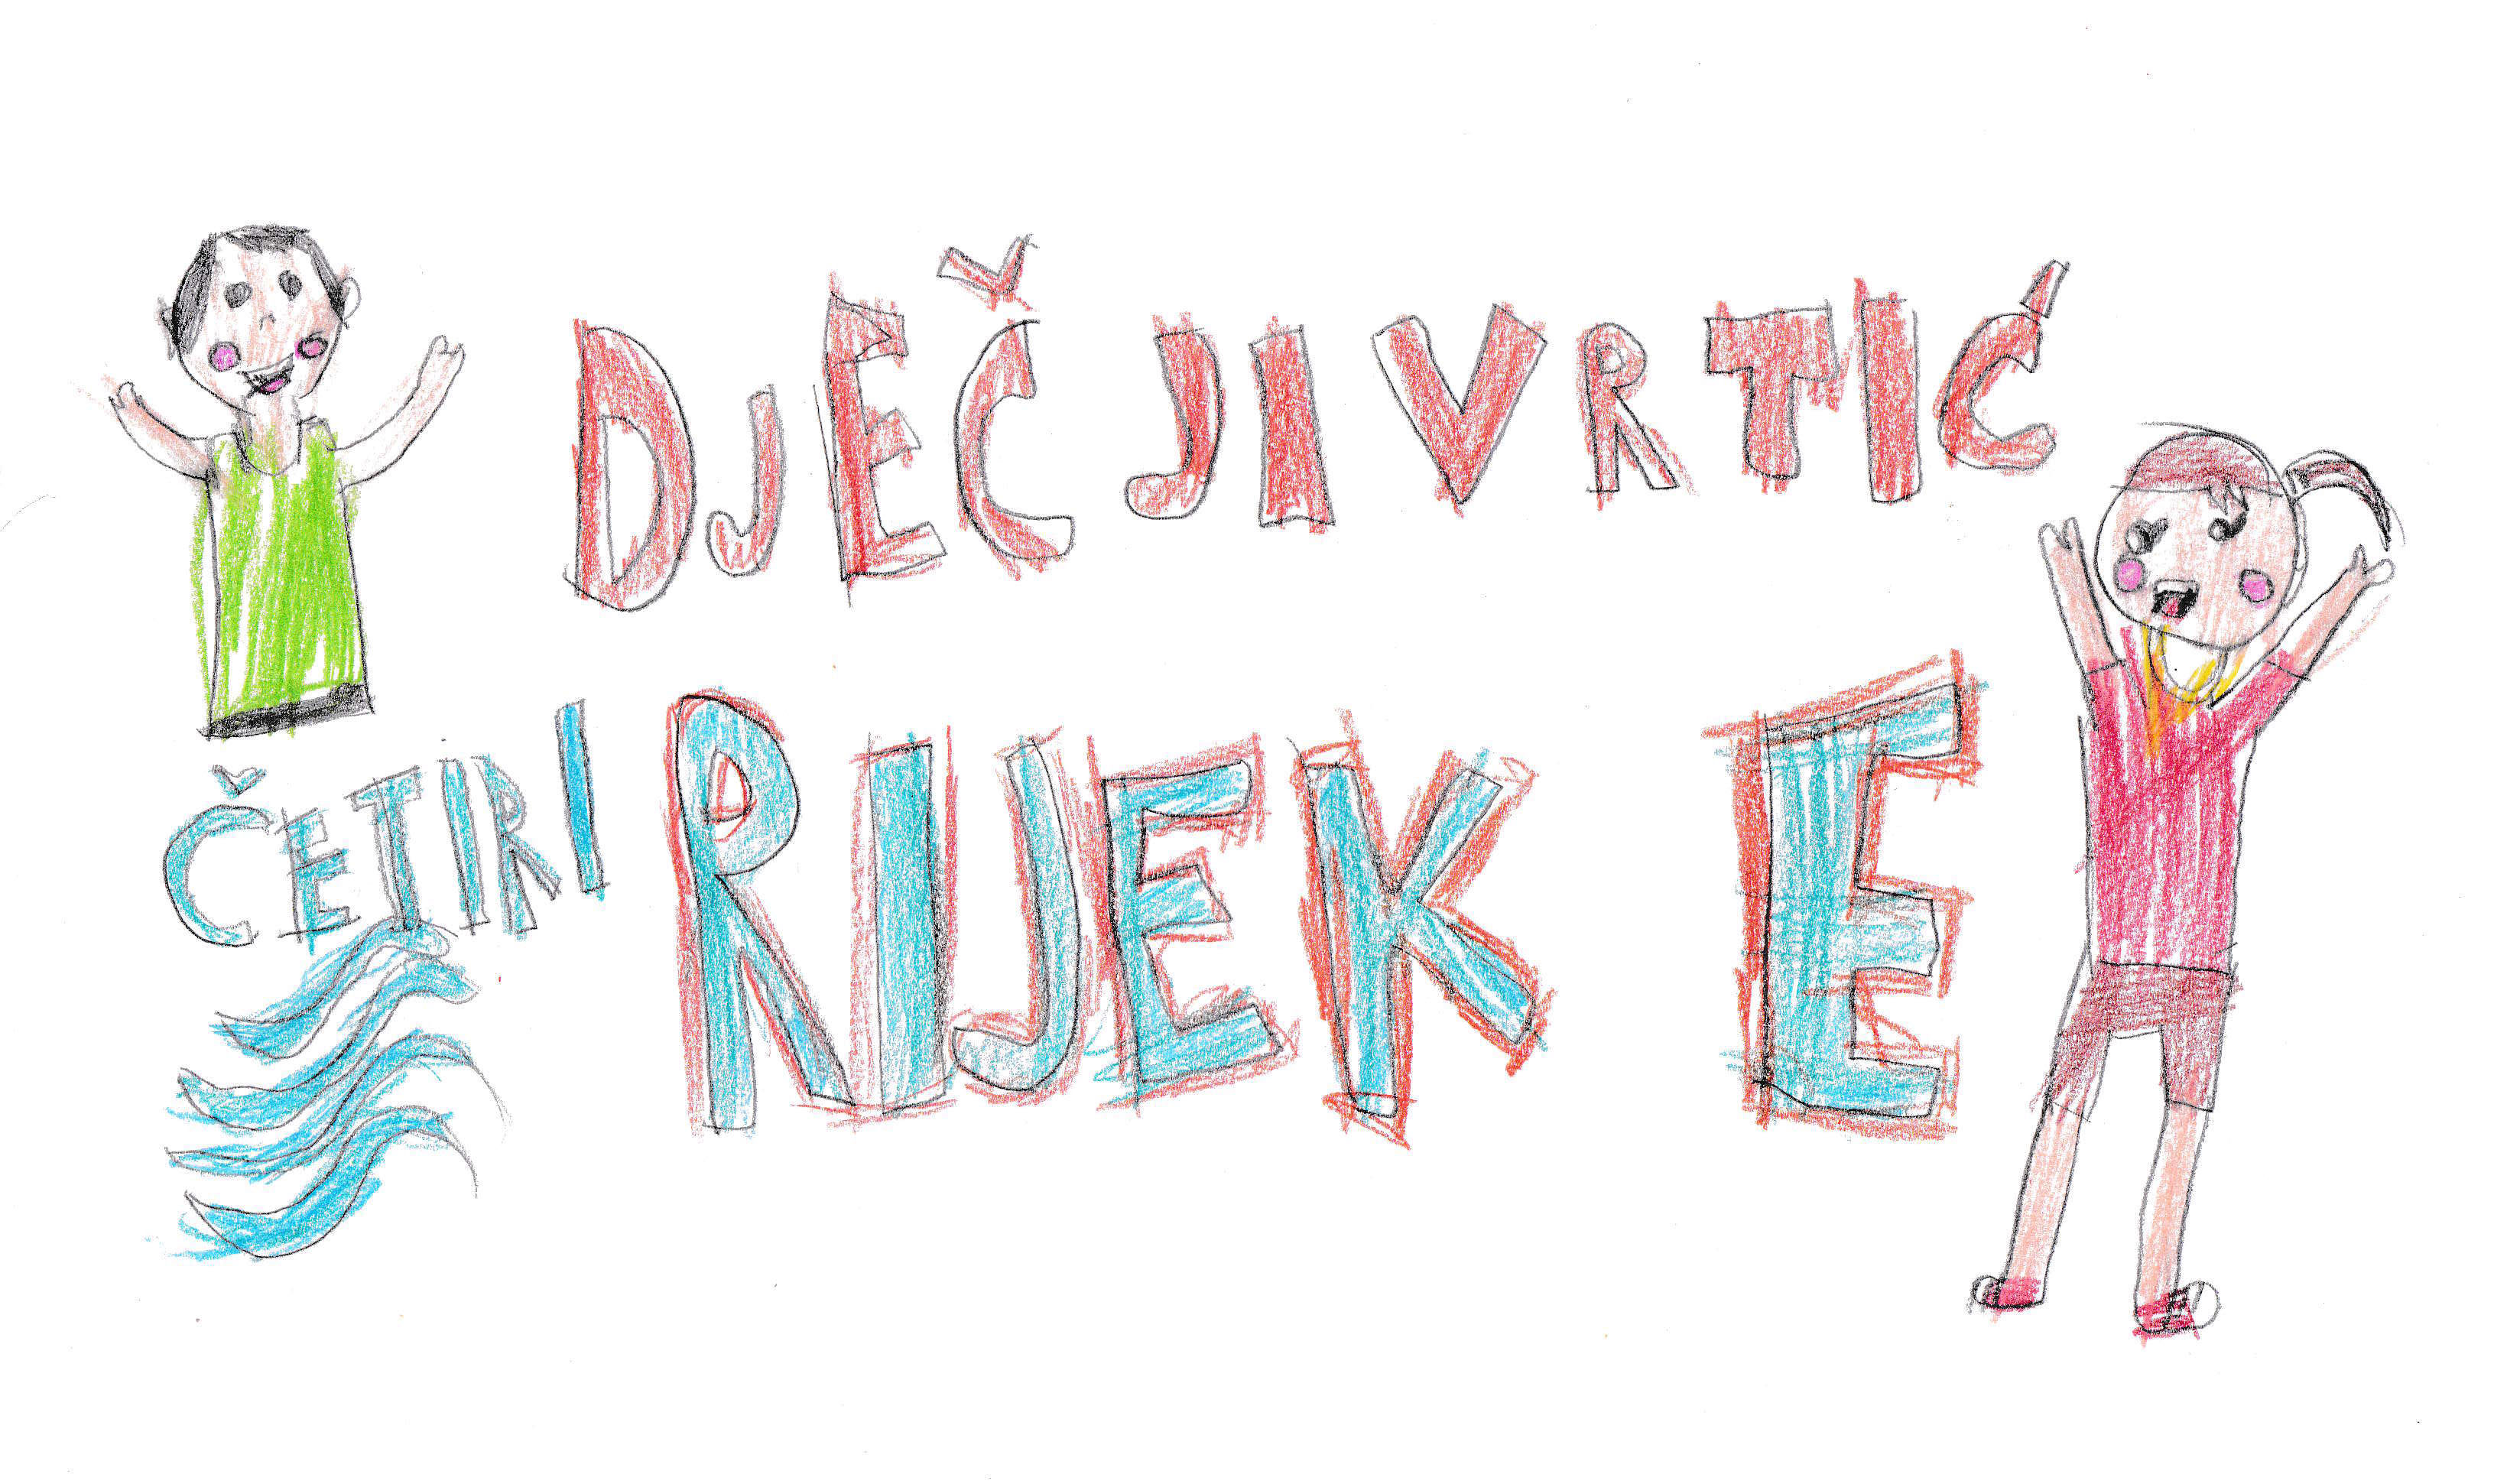 DJEČJI VRTIĆ
ČETIRI RIJEKE